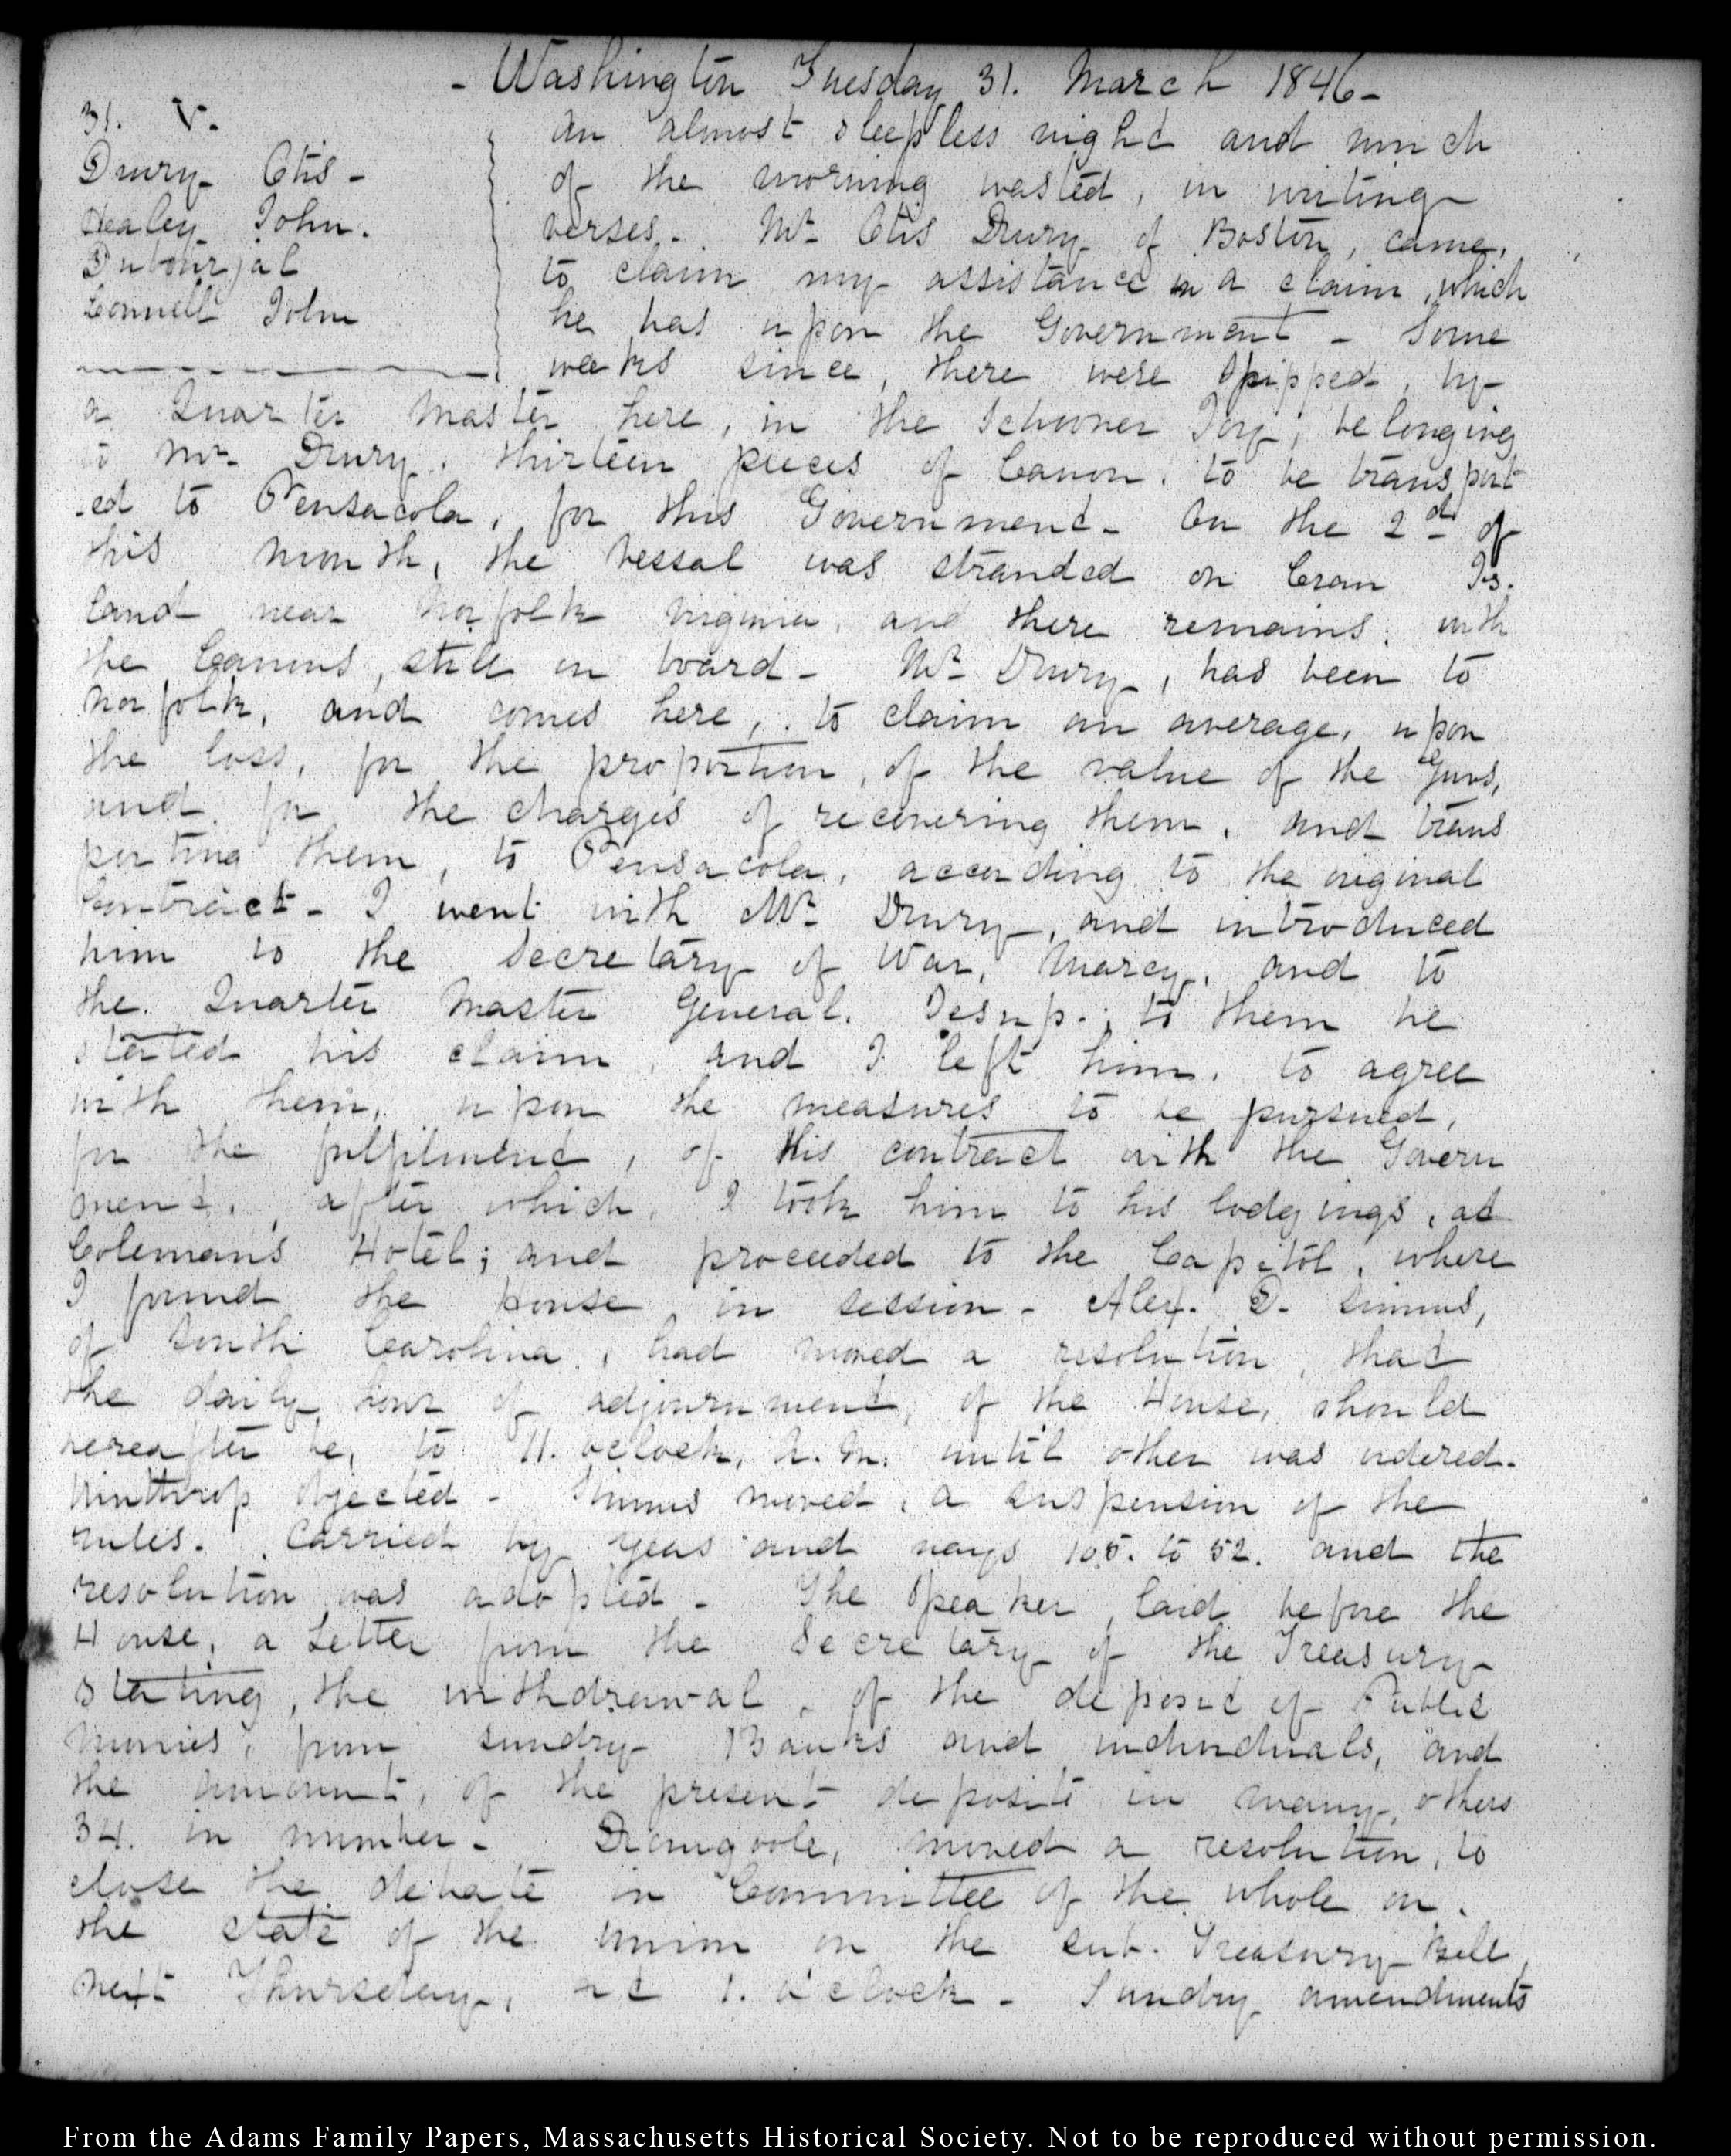 - Washington Tuesday 31. March 1846 -
31. V.
Drury Otis -
Healey John.
Dubourjal
Connell John
An almost sleepless night and much
of the morning wasted, in writing
verses. Mr. Otis Drury of Boston, came,
to claim my assistance in a claim, which
he has upon the Government - Some
weeks since, there were shipped, by
a Quarter Master here, in the Schooner Tory, belonging
to Mr. Drury. thirteen pieces of Canon, to be transport
-ed to Pensacola, for this Government - On the 2d. of
this month, the vessal was stranded on Crany Is.
land near Norfolk Virginia, and there remains, with
the Canons, still on board - Mr. Drury, has been to
Norfolk, and comes here, to claim an average, upon
the loss, for the proportion, of the value of the Guns,
and for the charges of recovering them, and trans
porting them, to Pensacola, according to the original
Contract - I went with Mr. Drury, and introduced
him to the Secretary of War, Marcy, and to
the Quarter Master General. Jesup.; to them he
stated his claim, and I left him, to agree
with them, upon the measures to be pursued,
for the fulfilment, of this contract with the Govern
ment. after which, I took him to his lodgings, at
Coleman's Hotel; and proceeded to the Capitol, where
I found the House, in session - Alex. D. Simms,
of South Carolina, had moved a resolution, that
the daily hour of adjournment, of the House, should
hereafter be, to 11. o'clock, A.M. until other was ordered.
Winthrop objected - Simms moved, a suspension of the
rules. Carried by yeas and nays 105. to 52. and the
resolution was adopted - The Speaker, laid before the
House, a Letter from the Secretary of the Treasury
stating, the withdrawal, of the deposit of Public
Monies, from sundry Banks and individuals, and
the amount, of the present deposite in many, others
34. in number - Dromgoole, moved a resolution, to
close the debate in Committee of the whole on
the state of the Union on the Sub. Treasury Bill
next Thursday, at 1. o'clock - Sundry amendments
From the Adams Family Papers, Massachusetts Historical Society. Not to be reproduced without permission.